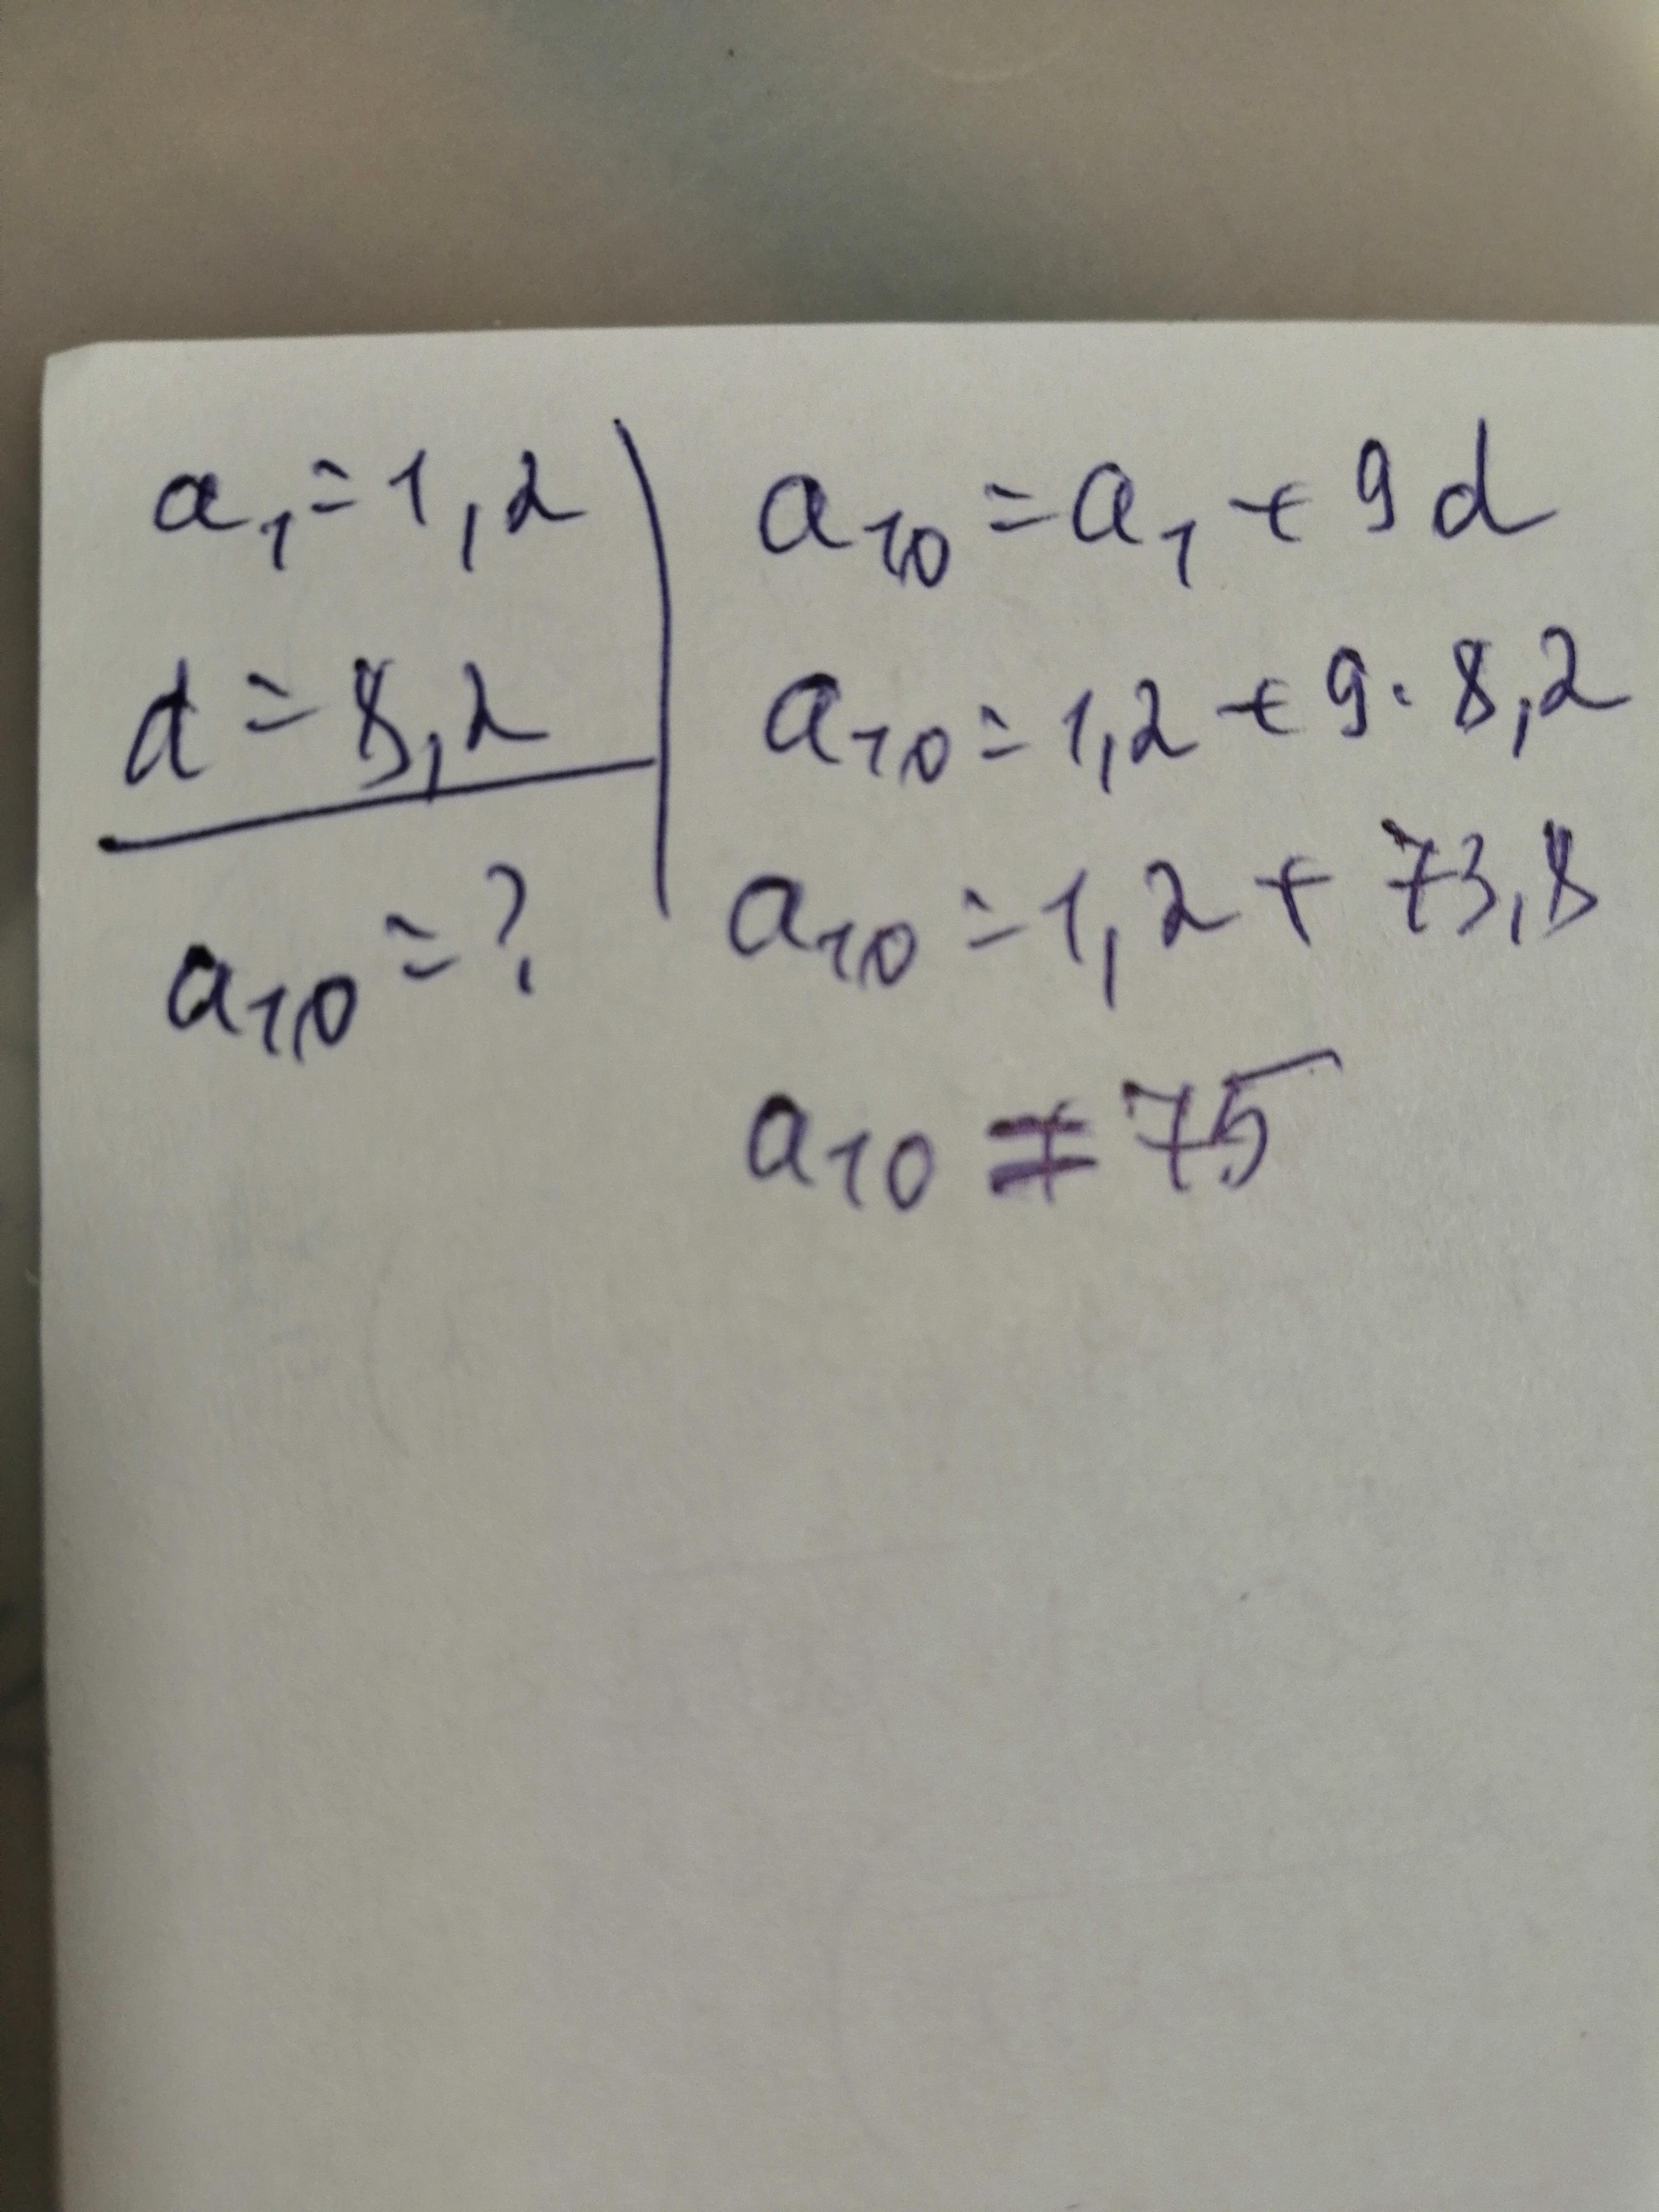 a₁=1,2
d=8,2
a₁₀=?
a₁₀=a₁+9d
a₁₀=1,2+9·8,2
a₁₀=1,2+73,8
a₁₀=75